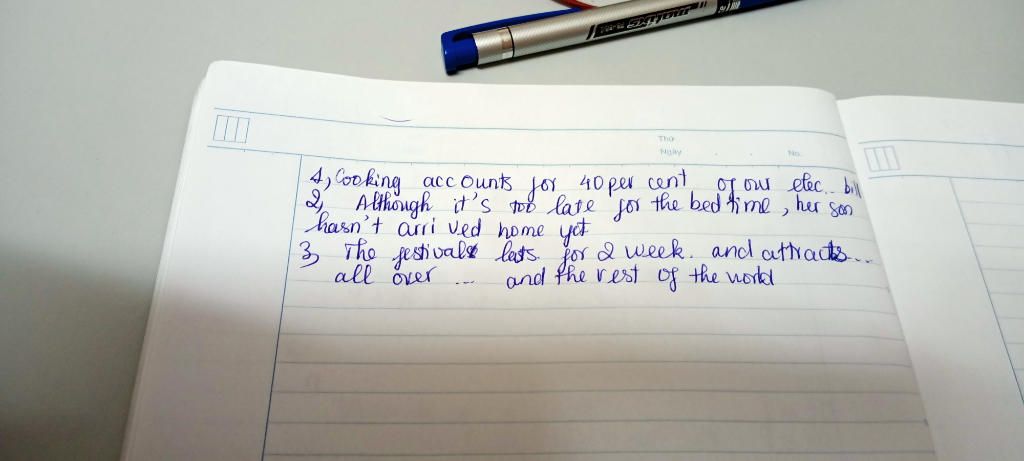 Thứ
Ngày . . No.
1, Cooking accounts for 40 per cent of our elec.. bill
2, Although it's too late for the bed time, her son
hasn't arrived home yet
3, The festivals lats. for 2 week. and attracts...
all over ... and the rest of the world